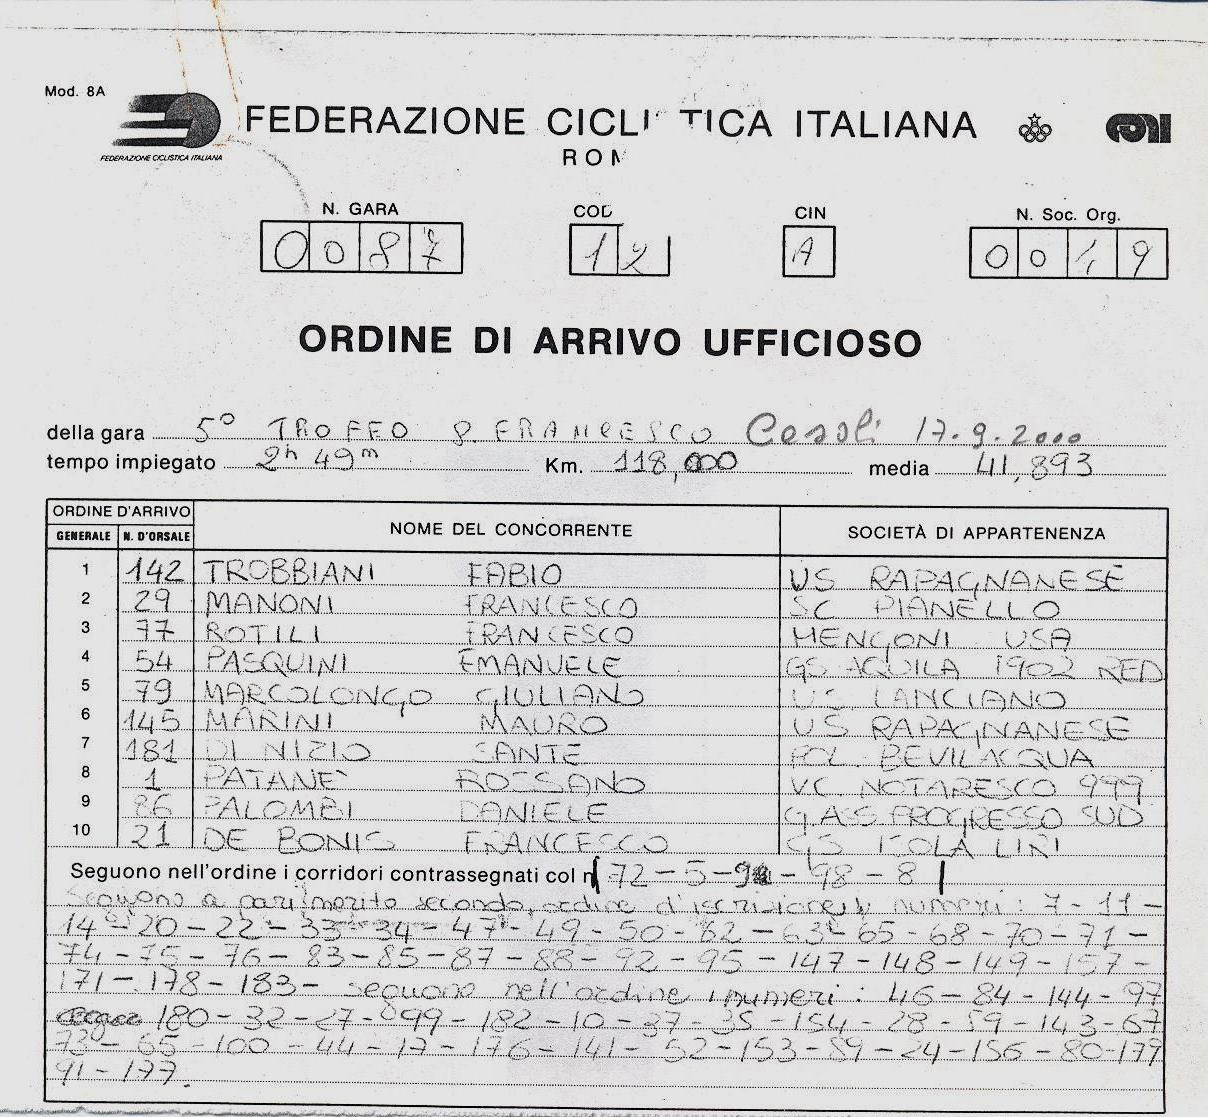 Mod. 8A
FEDERAZIONE CICLISTICA ITALIANA
FEDERAZIONE CICLISTICA ITALIANA
ROM
N. GARA COD CIN N. Soc. Org.
0087 12 A 0019
ORDINE DI ARRIVO UFFICIOSO
della gara 5° TROFEO S. FRANCESCO Casoli 17.9.2000
tempo impiegato 2h 49m Km. 118,000 media 41,893
ORDINE D'ARRIVO
GENERALE N. D'ORSALE NOME DEL CONCORRENTE SOCIETÀ DI APPARTENENZA
1 142 TROBBIANI FABIO US RAPAGNANESE
2 29 MANONI FRANCESCO SC PIANELLO
3 77 ROTILI FRANCESCO MENGONI USA
4 54 PASQUINI EMANUELE GS AQUILA 1902 RED
5 79 MARCOLONGO GIULIANO US LANCIANO
6 145 MARINI MAURO US RAPAGNANESE
7 181 DI NIZIO SANTE POL BEVILACQUA
8 1 PATANE' ROSSANO VC NOTARESCO 999
9 86 PALOMBI DANIELE G.A.S PROGRESSO SUD
10 21 DE BONIS FRANCESCO GS ISOLA LIRI
Seguono nell'ordine i corridori contrassegnati col n 72 - 5 - - 98 - 8
Seguono a pari merito secondo ordine d'iscrizione i numeri: 7 - 11 -
14 - 20 - 22 - 33 - 34 - 47 - 49 - 50 - 62 - 63 - 65 - 68 - 70 - 71 -
74 - 75 - 76 - 83 - 85 - 87 - 88 - 92 - 95 - 147 - 148 - 149 - 157 -
171 - 178 - 183 - seguono nell'ordine i numeri: 46 - 84 - 144 - 97
180 - 32 - 27 - 99 - 182 - 10 - 37 - 35 - 154 - 28 - 59 - 143 - 67
73 - 65 - 100 - 44 - 17 - 176 - 141 - 52 - 153 - 89 - 24 - 156 - 80 - 179
91 - 177.